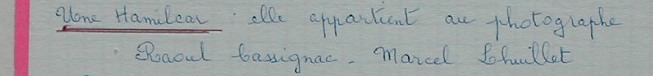 Une Hamilcar : elle appartient au photographe
Raoul Cassignac - Marcel Lhuillet